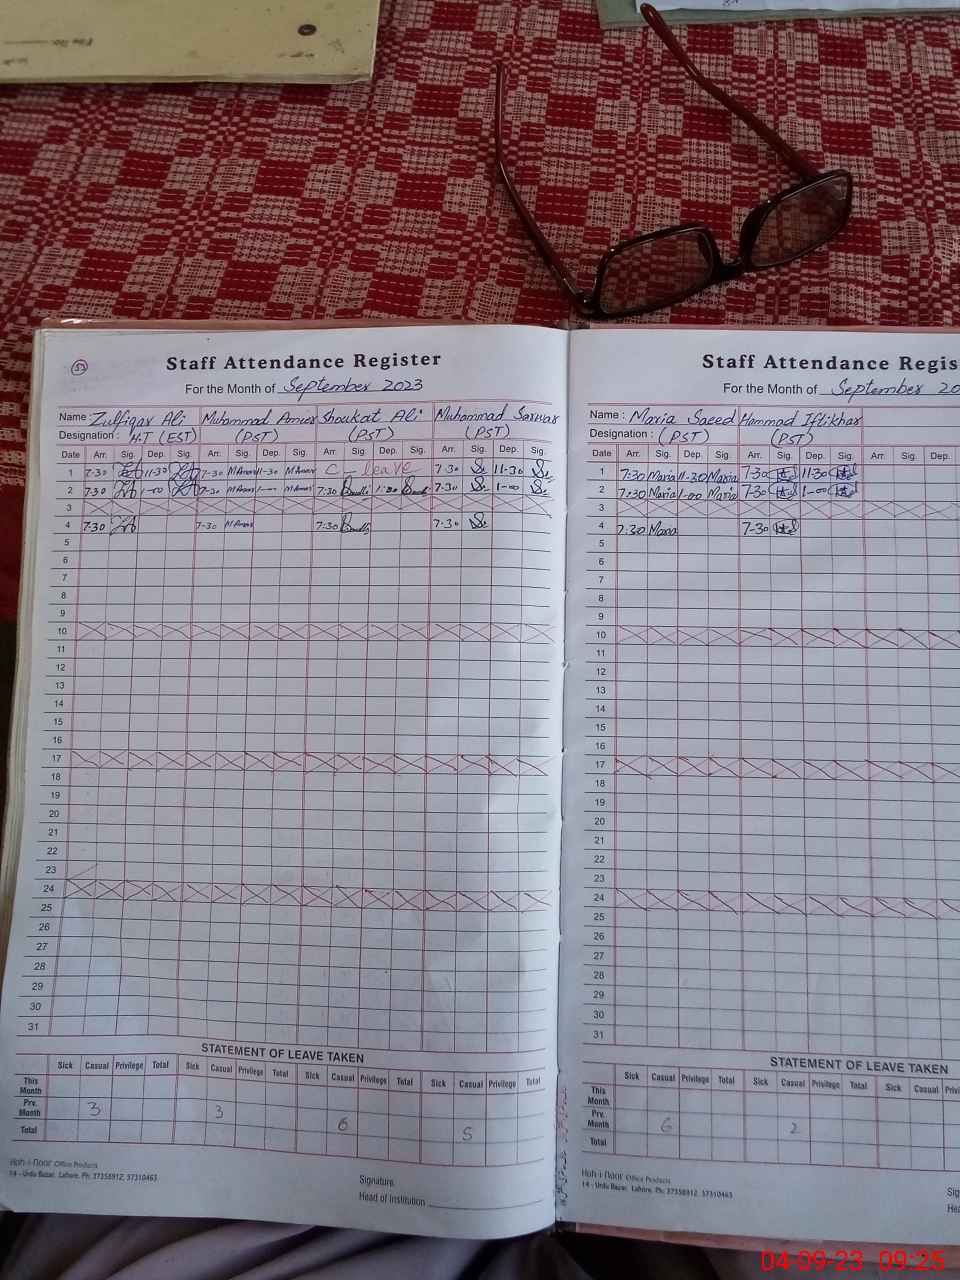 57
Staff Attendance Register
For the Month of September 2023
Name : Zulfiqar Ali Muhammad Ameer Shoukat Ali Muhammad Sarwar
Designation : H.T (EST) (PST) (PST) (PST)
Date Arr. Sig. Dep. Sig. Arr. Sig. Dep. Sig. Arr. Sig Dep. Sig. Arr. Sig. Dep. Sig.
1 7-30 11-30 7-30 11-30 C - leave 7-30 11-30
2 7-30 1-00 7-30 1-00 7:30 1:00 7-30 1-00
3
4 7-30 7-30 7:30 7-30
5
6
7
8
9
10
11
12
13
14
15
16
17
18
19
20
21
22
23
24
25
26
27
28
29
30
31
STATEMENT OF LEAVE TAKEN
Sick Casual Privilege Total Sick Casual Privilege Total Sick Casual Privilege Total Sick Casual Privilege Total
This Month
Prv. Month 3 3 6 5
Total
Koh-i-Noor Office Products
14 - Urdu Bazar, Lahore. Ph: 37358912, 37310463
Signature
Head of Institution
Staff Attendance Regis
For the Month of September 20
Name : Maria Saeed Hammad Iftikhar
Designation : (PST) (PST)
Date Arr. Sig. Dep. Sig. Arr. Sig. Dep. Sig. Arr. Sig. Dep.
1 7:30 Maria 11-30 Maria 7-30 11-30
2 7:30 Maria 1-00 Maria 7-30 1-00
3
4 7:30 Maria 7-30
5
6
7
8
9
10
11
12
13
14
15
16
17
18
19
20
21
22
23
24
25
26
27
28
29
30
31
STATEMENT OF LEAVE TAKEN
Sick Casual Privilege Total Sick Casual Privilege Total Sick Casual Privi
This Month
Prv. Month 6 2
Total
Koh-i-Noor Office Products
14 - Urdu Bazar, Lahore. Ph: 37358912, 37310463
Sig
Hea
04-09-23 09:25